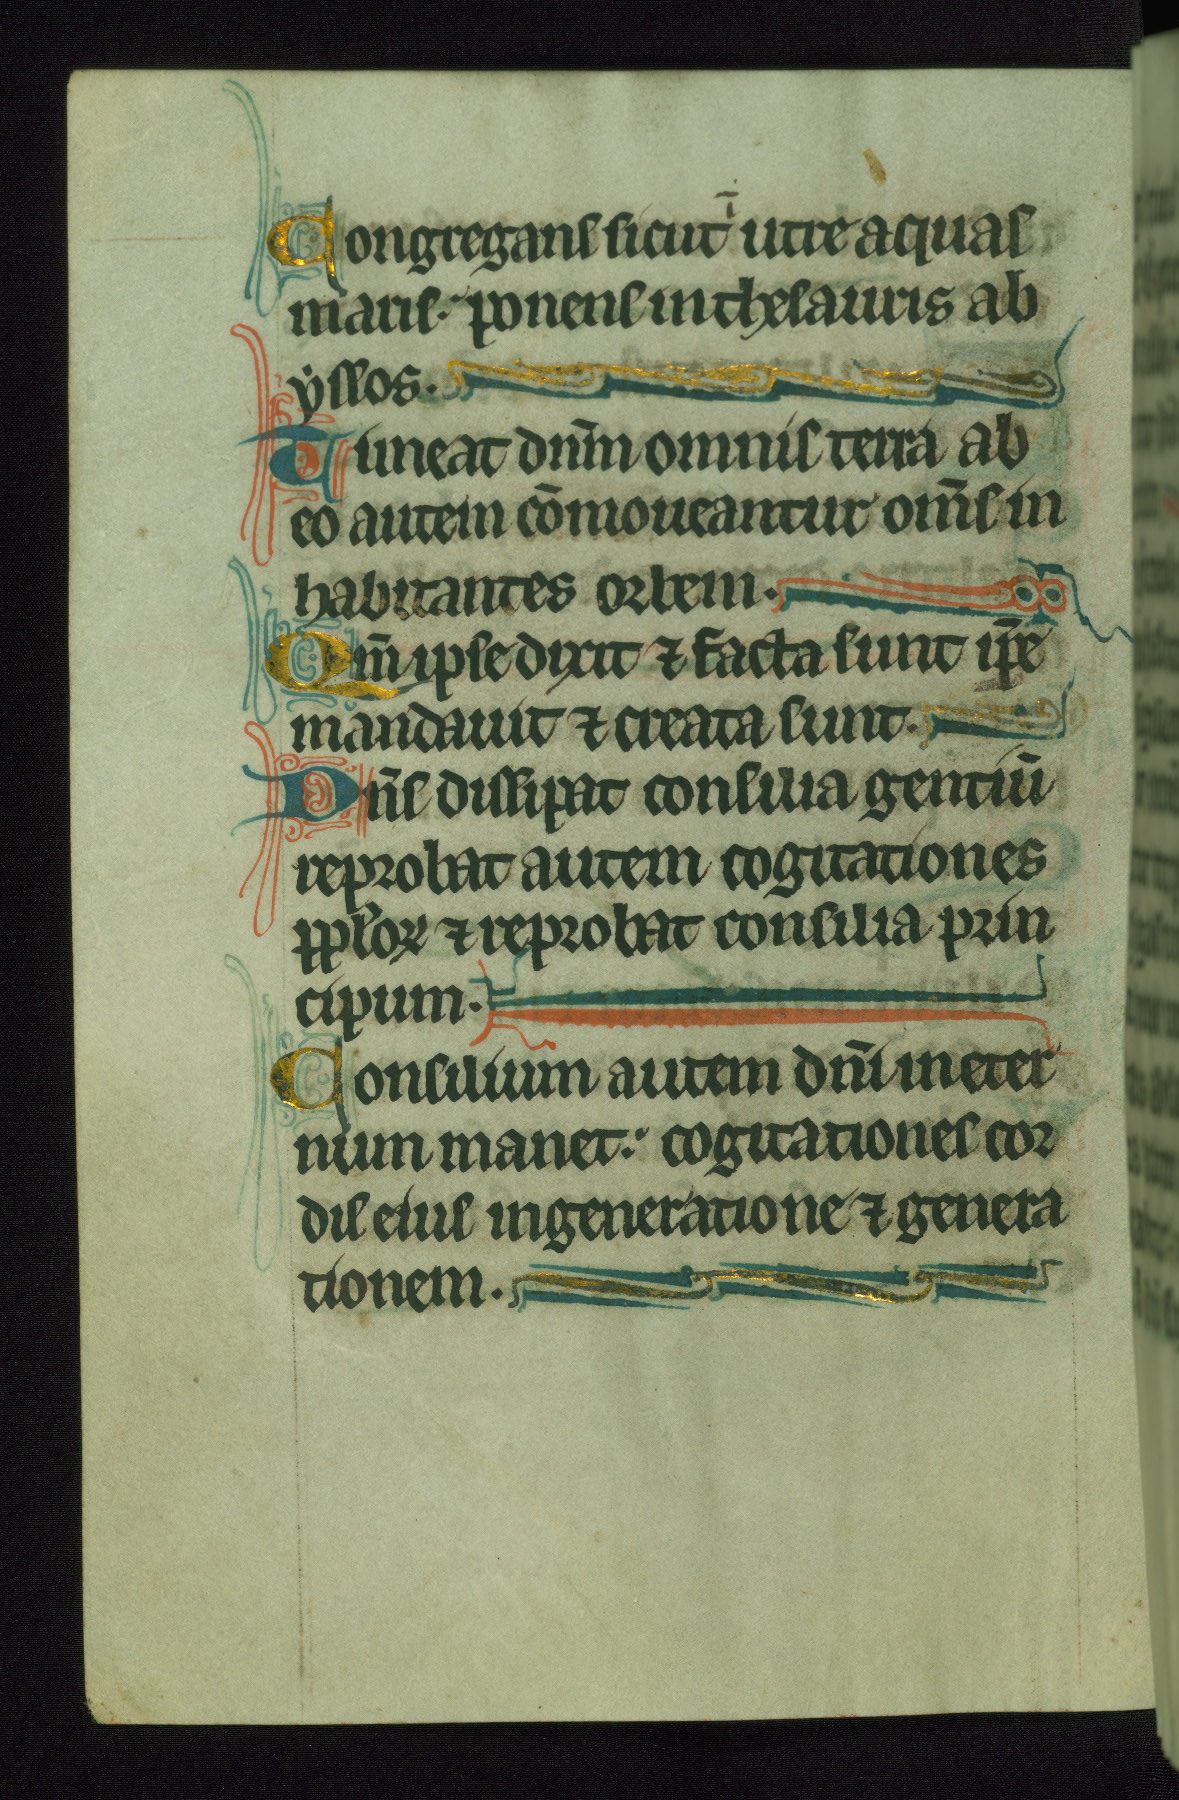 Congregans sicut ī utre aquas
maris. ponens in thesauris ab
yssos.
Timeat dn̄m omnis terra ab
eo autem cōmoueantur om̄s in
habitantes orbem.
Qm̄ ipse dixit ⁊ facta sunt ip̄e
mandauit ⁊ creata sunt.
Dn̄s dissipat consilia gentiū
reprobat autem cogitationes
pplor̄ ⁊ reprobat consilia prin
cipum.
Consilium autem dn̄i in eter
num manet. cogitationes cor
dis eius in generatione ⁊ genera
tionem.